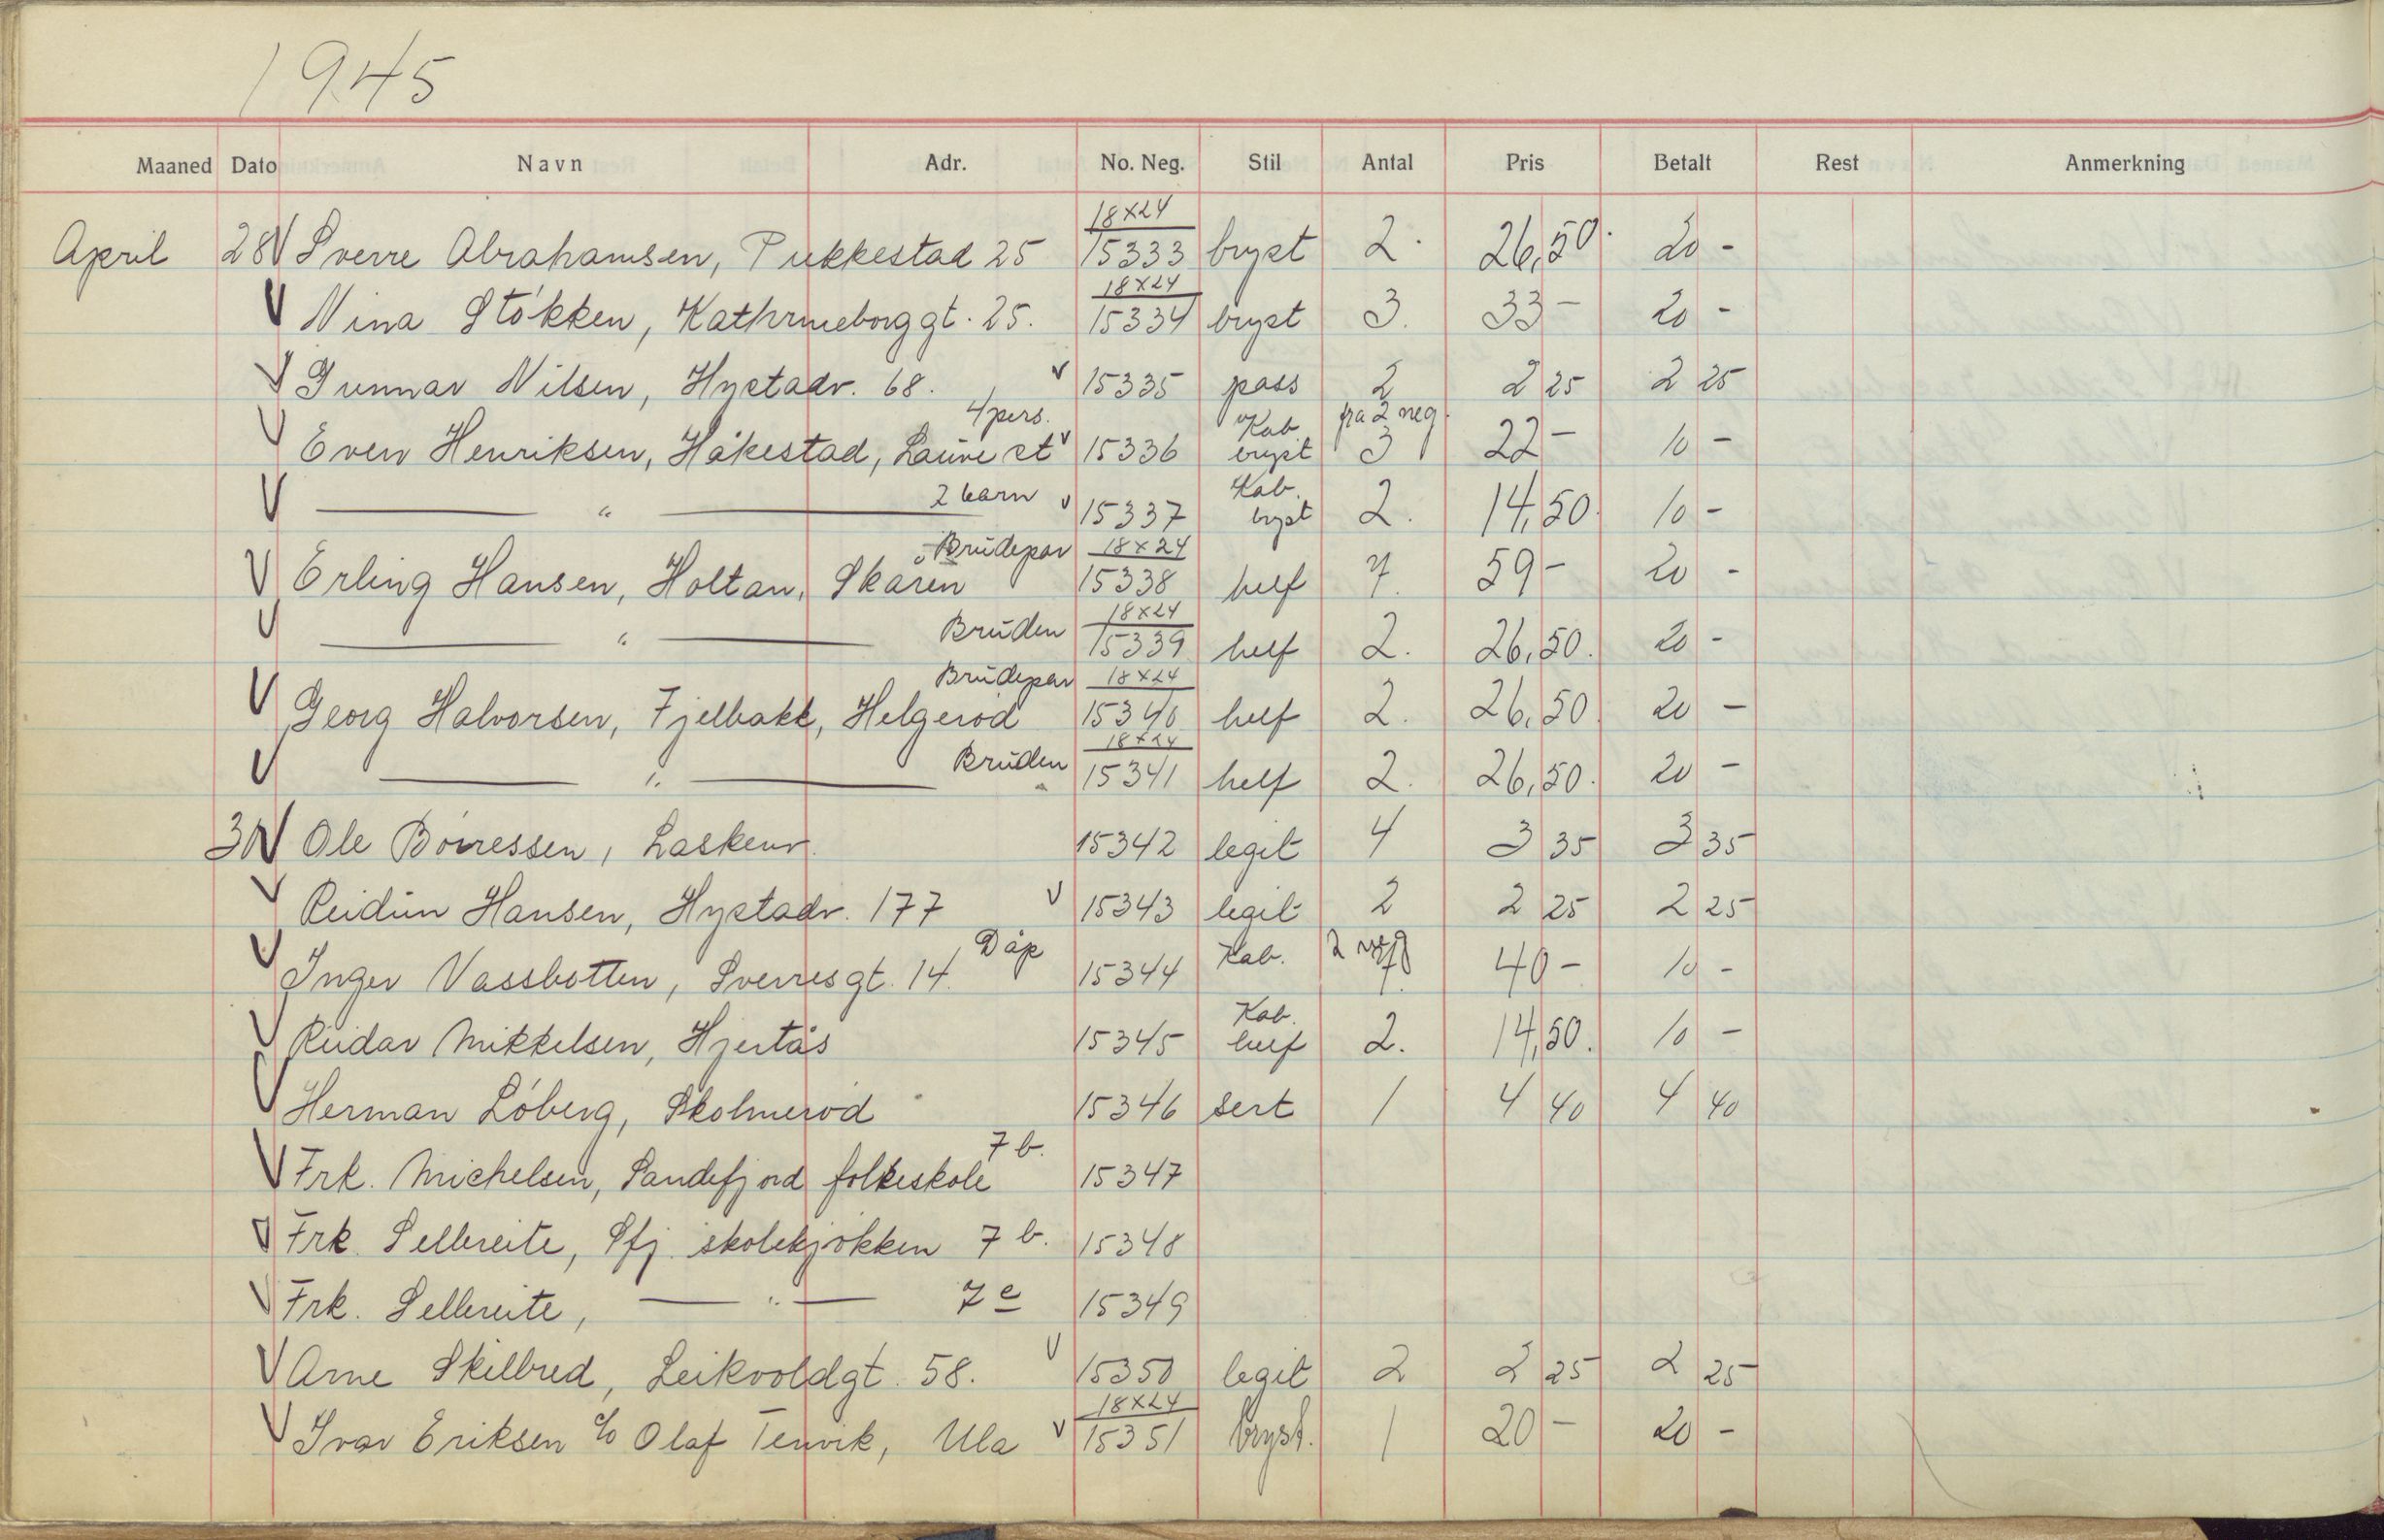 1945
Maaned Dato Navn Adr. No. Neg. Stil Antal Pris Betalt Rest Anmerkning
18x24
April 28 V Sverre Abrahamsen, Pukkestad 25 15333 bryst 2. 26,50. 20 -
18x24
V Nina Stökken, Kathrineborggt. 25. 15334 bryst 3. 33 - 20 -
V Gunnar Nilsen, Hystadv. 68. V 15335 pass 2 2 25 2 25
4 pers. Kab fra 2 neg.
V Even Henriksen, Håkestad, Lauve st V 15336 bryst 3 22 - 10 -
2 barn Kab.
V — " — V 15337 bryst 2. 14,50. 10 -
Brudepar 18x24
V Erling Hansen, Holtan, Skåren 15338 helf 7. 59 - 20 -
18x24
V — " — Bruden 15339 helf 2. 26,50. 20 -
Brudepar 18x24
V Georg Halvorsen, Fjellbakk, Helgeröd 15340 helf 2. 26,50. 20 -
18x24
V — " — Bruden 15341 helf 2. 26,50. 20 -
30 V Ole Börressen, Laskenv. 15342 legit 4 3 35 3 35
V Reidun Hansen, Hystadv. 177 V 15343 legit 2 2 25 2 25
Dåp Kab. 2 neg
V Inger Vassbotten, Sverresgt. 14. 15344 7. 40 - 10 -
Kab.
V Reidar Mikkelsen, Hjertås 15345 helf 2. 14,50. 10 -
V Herman Löberg, Skolmeröd 15346 sert 1 4 40 4 40
7 b.
V Frk. Michelsen, Sandefjord folkeskole 15347
V Frk. Sellereite, Sfj. skolekjökken 7 b. 15348
V Frk. Sellereite, — " — 7 e 15349
V Arne Skilbred, Leikvoldgt. 58. V 15350 legit 2 2 25 2 25
18x24
V Ivar Eriksen c/o Olaf Tenvik, Ula V 15351 bryst. 1 20 - 20 -